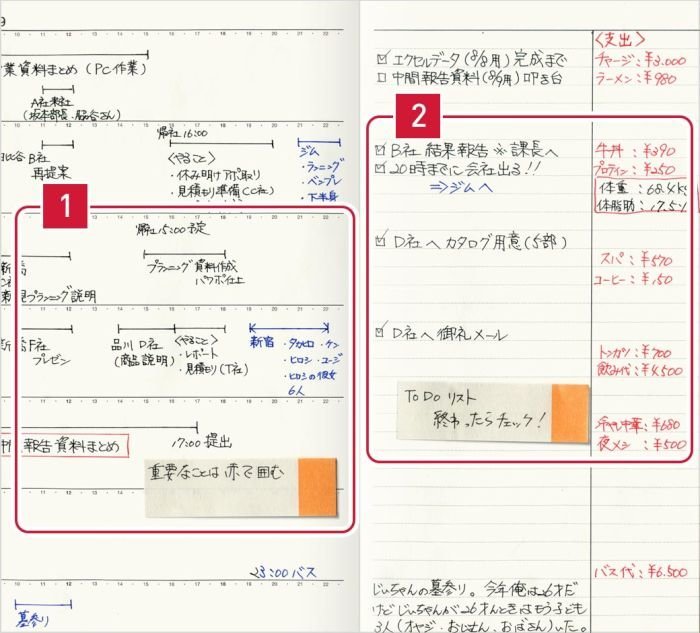 業資料まとめ (PC作業)
A社来社
(坂本部長、脇谷さん)
帰社 16:00
B社
再提案
<やること>
・休み明けアポ取り
・見積もり準備(C社)
ジム
・ランニング
・ベンプレ
・下半身
1
帰社 15:00 予定
プランニング資料作成
パワポ仕上
プランニング説明
F社
プレゼン
品川 D社
(商品説明)
<やること>
・レポート
・見積もり(T社)
新宿
・タカヒロ ・ケン
・ヒロシ ・ユージ
・ヒロシの彼女
6人
報告資料まとめ
17:00 提出
重要なことは赤で囲む
23:00 バス
10 11 12 13 14 15 16 17 18 19 20 21 22
墓参り
<支出>
☑ エクセルデータ(8/8用)完成まで
チャージ:¥3.000
□ 中間報告資料(8/9用)叩き台
ラーメン:¥980
2
☑ B社 結果報告 ※課長へ
牛丼:¥390
☑ 20時までに会社出る!!
プロテイン:¥250
⇒ジムへ
体重:68.4kg
体脂肪:17.5%
☑ D社へ カタログ用意(5部)
スパ:¥570
コーヒー:¥150
☑ D社へ 御礼メール
トンカツ:¥700
飲み代:¥4,500
To Do リスト
終わったらチェック!
冷やし中華:¥680
夜メシ:¥500
バス代:¥6.500
じいちゃんの墓参り。今年俺は26才だ
けどじいちゃんが26才んときはもう子ども
3人(オヤジ・おじさん、おばさん)いた。